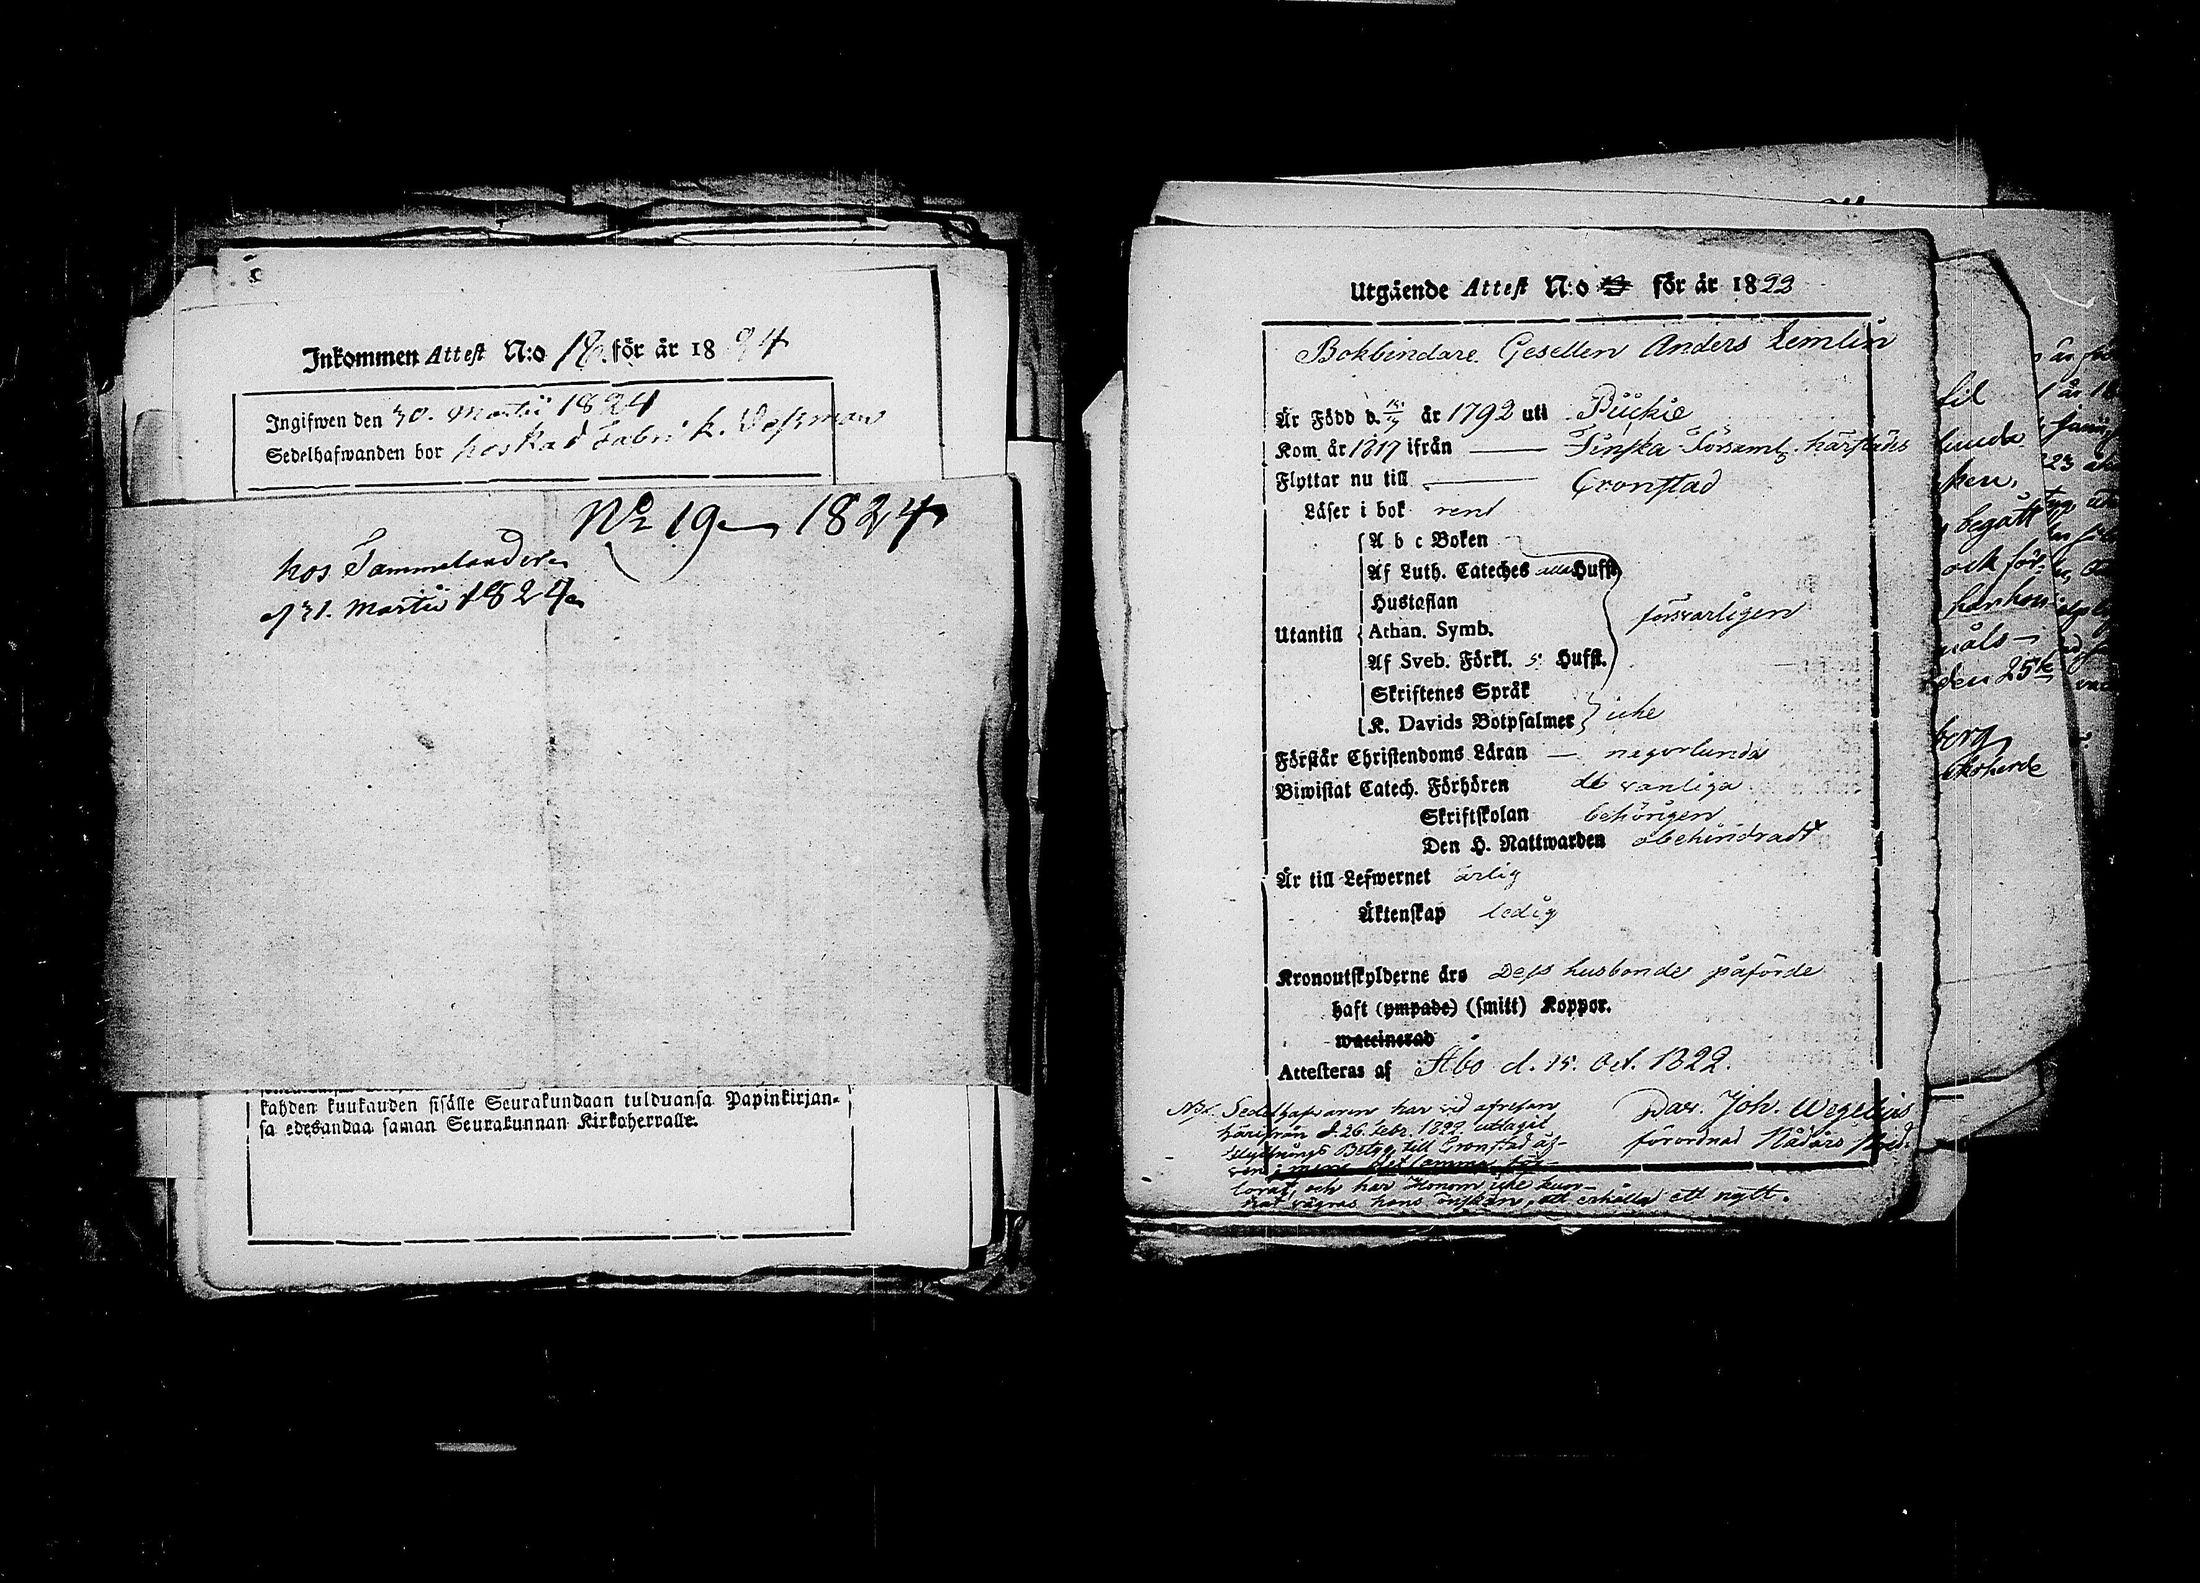 Inkommen Attest N:o 18. för år 1824
Ingifwen den 30. Martii 1824
Sedelhafwanden bor hos Kad Fabrik. Vessman
N:o 19 1824
hos Tammelander
d 31. Martii 1824
kahden kuukauden sisälle Seurakundaan tulduansa Papinkirjan-
sa edesandaa saman Seurakunnan Kirkoherralle.
Utgående Attest N:o för år 1822
Bokbindare Gesellen Anders Lemlin
Är Född d. år 1792 uti Pückie
Kom år 1817 ifrån Finska Församl. härstädes
Flyttar nu till Cronstad
Läser i bok rent
A b c Boken
Af Luth. Cateches alla Hufst.
Hustaflan
Utantill Athan. Symb. försvarligen
Af Sveb. Förkl. 5 Hufst.
Skriftenes Språk
K. Davids Botpsalmer icke
Förstår Christendoms Läran någorlunda
Biwistat Catech. Förhören de vanliga
Skriftskolan behörigen
Den H. Nattwarden obehindradt
Är till Lefwernet ärlig
Äktenskap ledig
Kronoutskylderne äro Dess husbonde påförde
haft (ympade) (smitt) Koppor.
waccinerad
Attesteras af Åbo d. 15. Oct. 1822.
Dav. Joh. Wegelius
förordnad Nådårs Pred.
Nb. Sedelhafvaren har vid afresan
härifrån d. 26. Febr. 1822. uttagit
flyttnings Betyg till Cronstad äf-
ven; men det samma för-
lorat, och har Honom icke kun-
nat vägras hans önskan, att erhålla ett nytt.
til
lunda
ken,
begått
och för-
den 25
berg